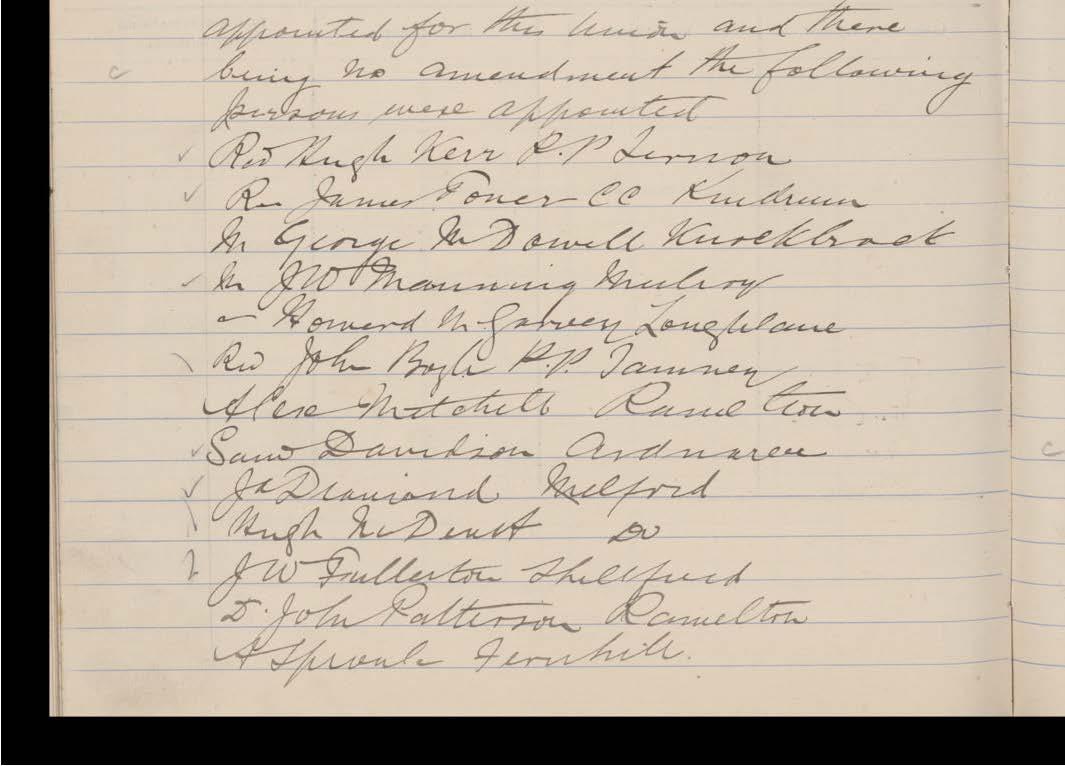 appointed for this Union and there
being no amendment the following
persons were appointed
Rev Hugh Kerr P.P Termon
Rev James Toner CC Kindrum
Mr George McDowell Knockbrack
Mr JW Manning Mulroy
" Howard McGarvey
Rev John Boyle P.P. Tamney
Alexr Mitchell Ramelton
Saml Davidson
Jas Diamond Milford
Hugh McDevitt Do
JW Fullerton Shellfield
Dr John Patterson Ramelton
A Sproule Fernhill.